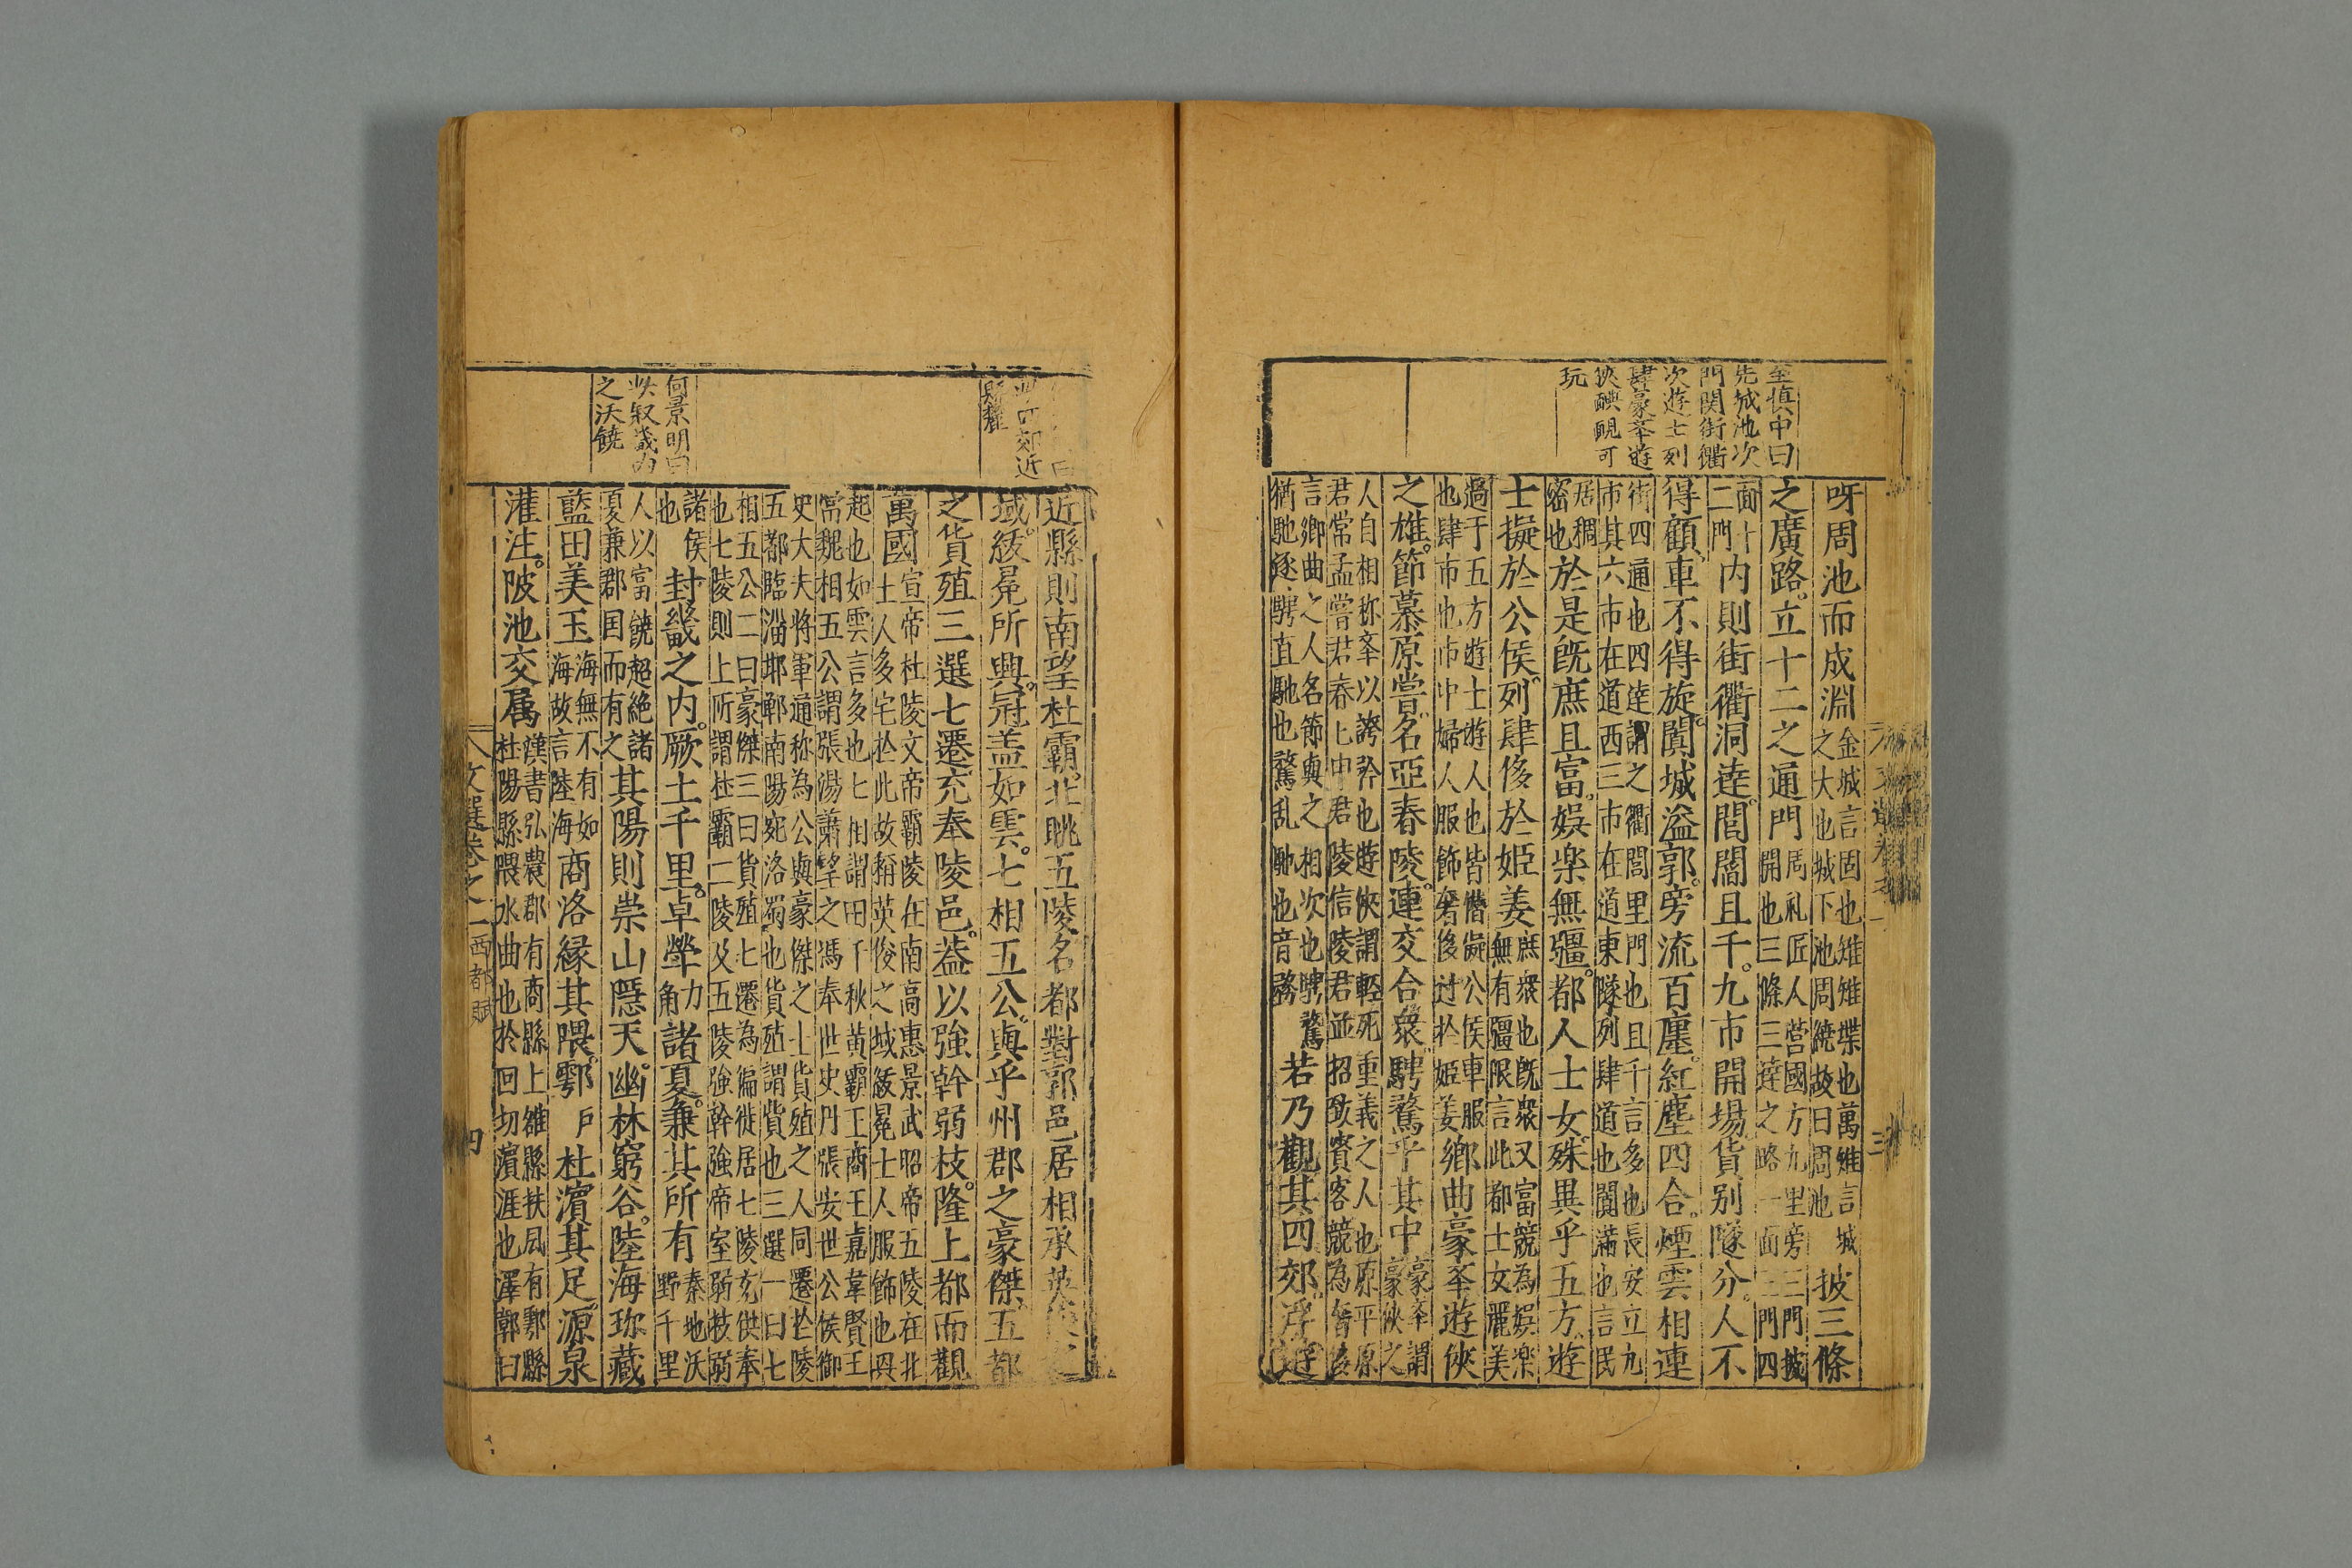 至慎中曰
先城池次
門関街衢
次遊士列
肆豪挙遊
俠㸃䩄可
玩
呀周池而成淵
金城言固也雉雉堞也萬雉言城
之大也城下池周繞故曰周池
披三條
之廣路。立十二之通門
周礼匠人营國方九里旁三門披
開也三條三逹之路一面三門四
面十
二門
内則街衢洞逹。閭閻且千。九市開場。貨别隧分。人不
得顧。車不得旋。闐城溢郭。旁流百廛。紅塵四合。煙雲相連
街四通也四逹謂之衢閭里門也且千言多也長安立九
市其六市在道西三市在道東隧列肆道也闐滿也言民
居稠
密也
於是旣庶且富。娯楽無疆。都人士女。殊異乎五方。遊
士擬於公侯。列肆侈於姬姜
庶衆也旣衆又富競為娯楽
無有疆限言此都士女麗美
過于五方遊士遊人也皆僭擬公侯車服
也肆市也市中婦人服飾奢侈过於姬姜
鄉曲豪挙遊俠
之雄。節慕原嘗。名亞春陵。連交合衆。騁騖乎其中
豪挙謂
豪俠之
人自相称挙以誇矜也遊俠謂輕死重義之人也原平原
君常孟嘗君春上中君陵信陵君並招致賓客競為奢侈
言鄉曲之人名節與之相次也騁騖
猶馳逐騁直馳也騖乱馳也音務
若乃觀其四郊。浮遊
三
郊近
縣麓
何景明曰
此叙畿内
之沃饒
近縣則南望杜霸。北眺五陵名都對郭邑居相承英俊之
域。紱冕所興。冠盖如雲。七相五公。與乎州郡之豪傑五都
之貨殖三選七遷充奉陵邑。葢以強幹弱枝。隆上都而觀
萬國
宣帝杜陵文帝霸陵在南高惠景武昭帝五陵在北
土人多宅於此故稱英俊之域紱冕士人服飾也興
起也如雲言多也七相謂田千秋黄霸王商王嘉韋賢王
常魏相五公謂張湯蕭望之馮奉世史丹張安世公侯御
史大夫将軍通称為公與豪傑之士貨殖之人同遷於陵
五都臨淄邯鄲南陽宛洛蜀也貨殖謂貨也三選一曰七
相五公二曰豪傑三曰貨殖七遷為徧徙居七陵充供奉
也七陵則上所謂杜霸二陵及五陵強幹強帝室弱枝弱
諸侯
也
封畿之内。厥土千里。卓犖
力
角
諸夏。兼其所有
秦地沃
野千里
人以富饒超絶諸
夏兼郡国而有之
其陽則崇山隱天。幽林窮谷。陸海珍藏
藍田美玉
海無不有如
海故言陸海
商洛緣其隈。鄠
戶
杜濱其足。源泉
灌注。陂池交属
漢書弘農郡有商縣上雒縣扶风有鄠縣
杜陽縣隈水曲也於回切濱涯也澤鄣曰
文選巻之一
西都賦
四